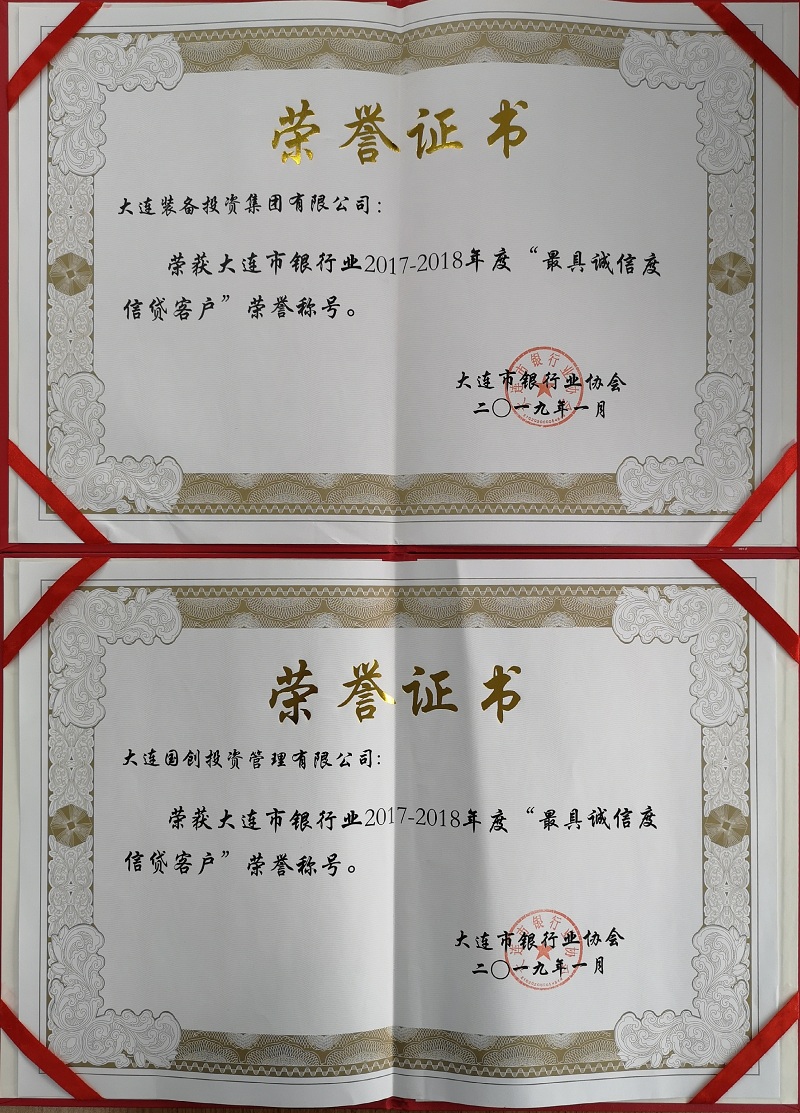 荣誉证书
大连装备投资集团有限公司：
荣获大连市银行业2017-2018年度“最具诚信度
信贷客户”荣誉称号。
大连市银行业协会
二〇一九年一月
荣誉证书
大连国创投资管理有限公司：
荣获大连市银行业2017-2018年度“最具诚信度
信贷客户”荣誉称号。
大连市银行业协会
二〇一九年一月